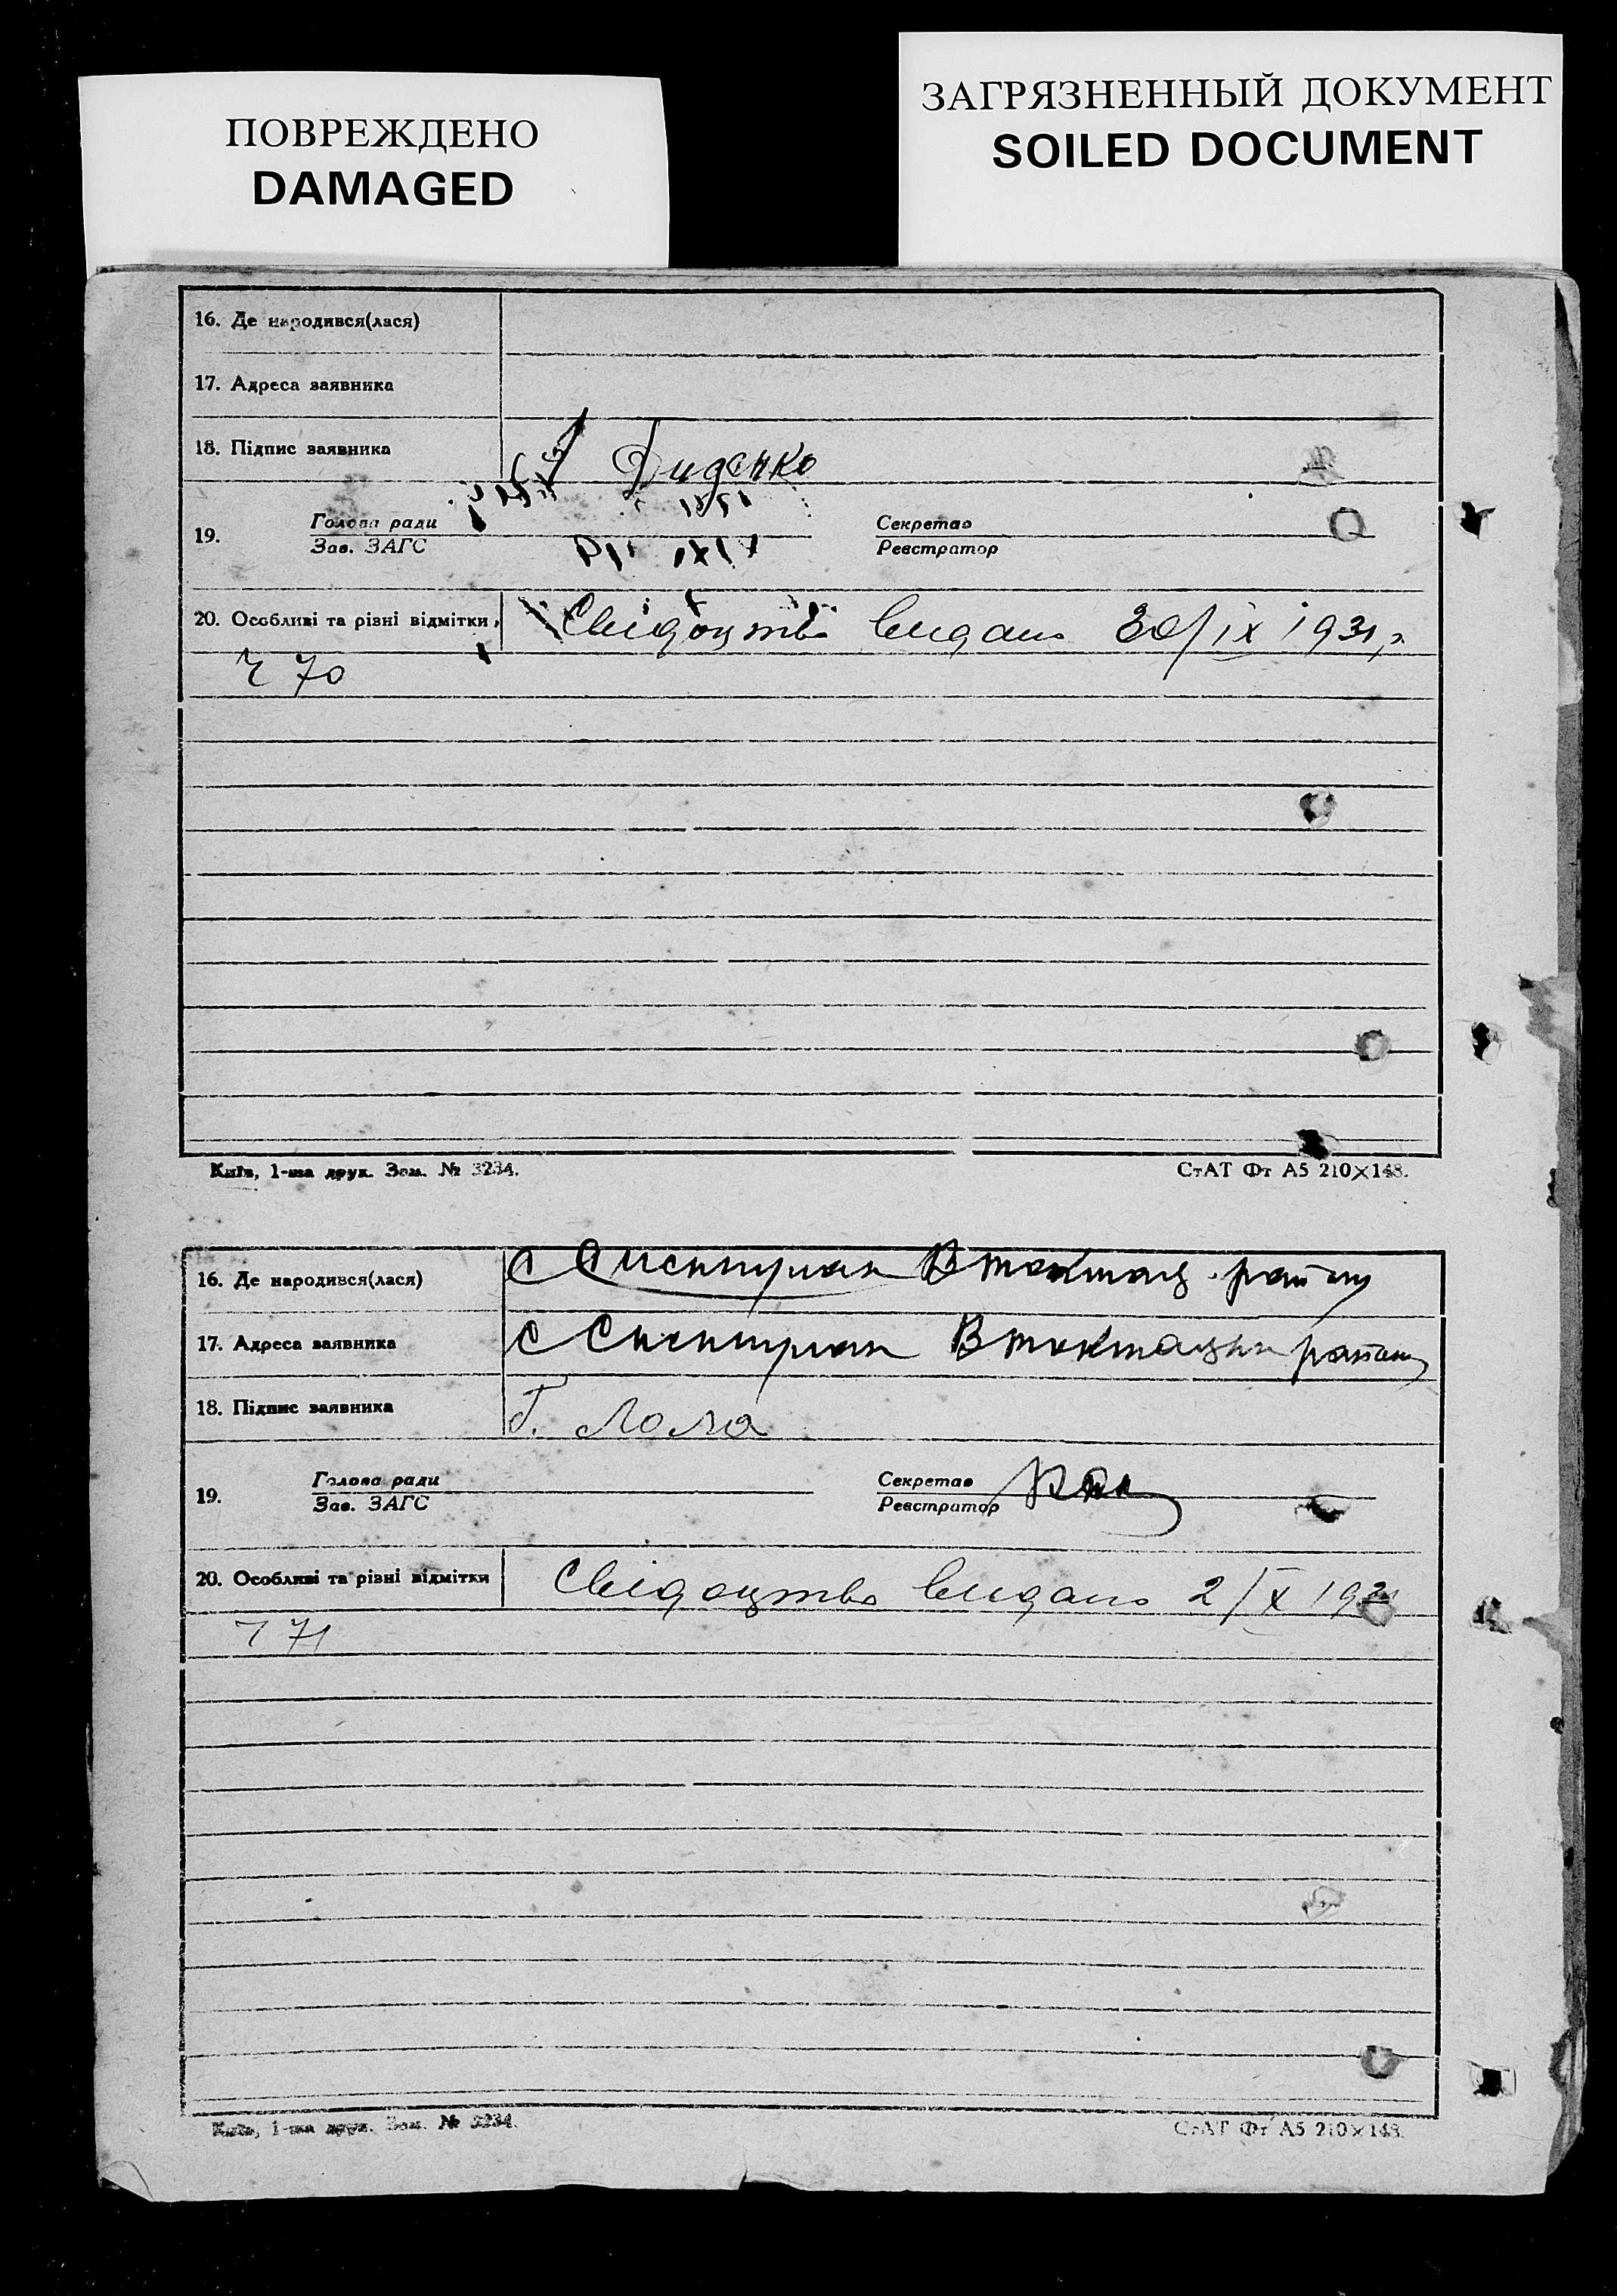 ПОВРЕЖДЕНО
DAMAGED
ЗАГРЯЗНЕННЫЙ ДОКУМЕНТ
SOILED DOCUMENT
16. Де народився(лася)
17. Адреса заявника
18. Підпис заявника Диденко
19. Голова ради Секретар
Зав. ЗАГС Реєстратор
20. Особливі та різні відмітки Свідоцтво видано 30/IX 1931 р
Ч 70
Київ, 1-ша друк. Зам. № 3234. СтАТ Фт А5 210×148.
16. Де народився(лася) С
17. Адреса заявника С
18. Підпис заявника Г. Лола
19. Голова ради Секретар
Зав. ЗАГС Реєстратор
20. Особливі та різні відмітки Свідоцтво видано 2/X 1931
Ч 71
Київ, 1-ша друк. Зам. № 3234. СтАТ Фт А5 210×148.